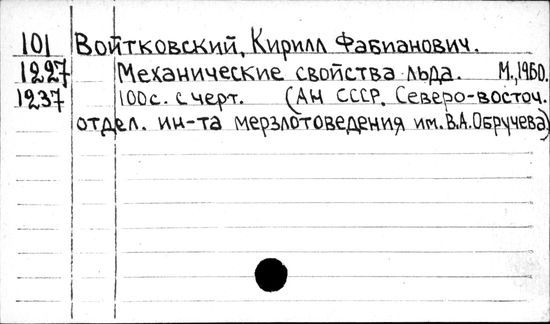 101 Войтковский, Кирилл Фабианович.
1227 Механические свойства льда. М., 1960.
1237 100 с. с черт. (АН СССР. Северо-восточ.
отдел. ин-та мерзлотоведения им. В.А. Обручева)